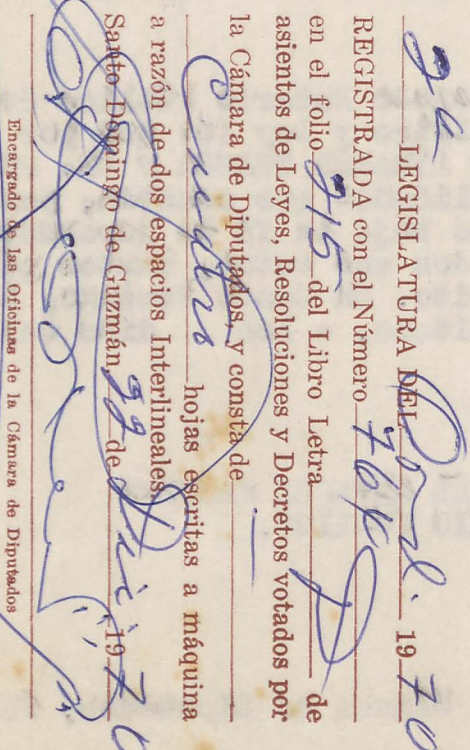 2a LEGISLATURA DEL Ord. 1970
REGISTRADA con el Número
en el folio 215 del Libro Letra D de
asientos de Leyes, Resoluciones y Decretos votados por
la Cámara de Diputados, y consta de
cuatro hojas escritas a máquina
a razón de dos espacios Interlineales
Santo Domingo de Guzmán de Dic. 1970
Encargado de las Oficinas de la Cámara de Diputados